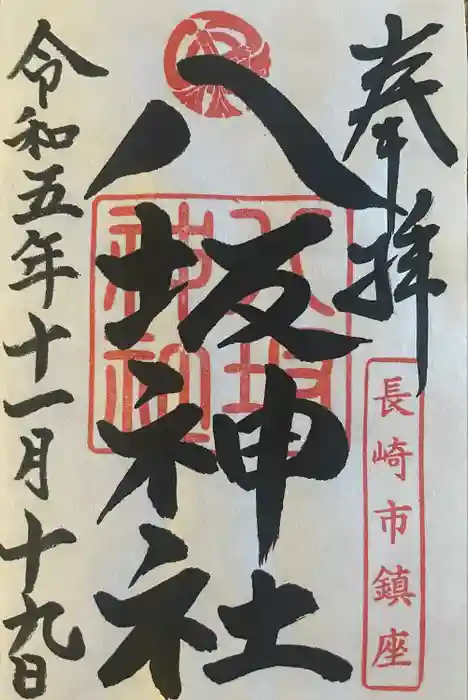 奉拝
長崎市鎮座
八坂神社
八坂神社
令和五年十一月十九日